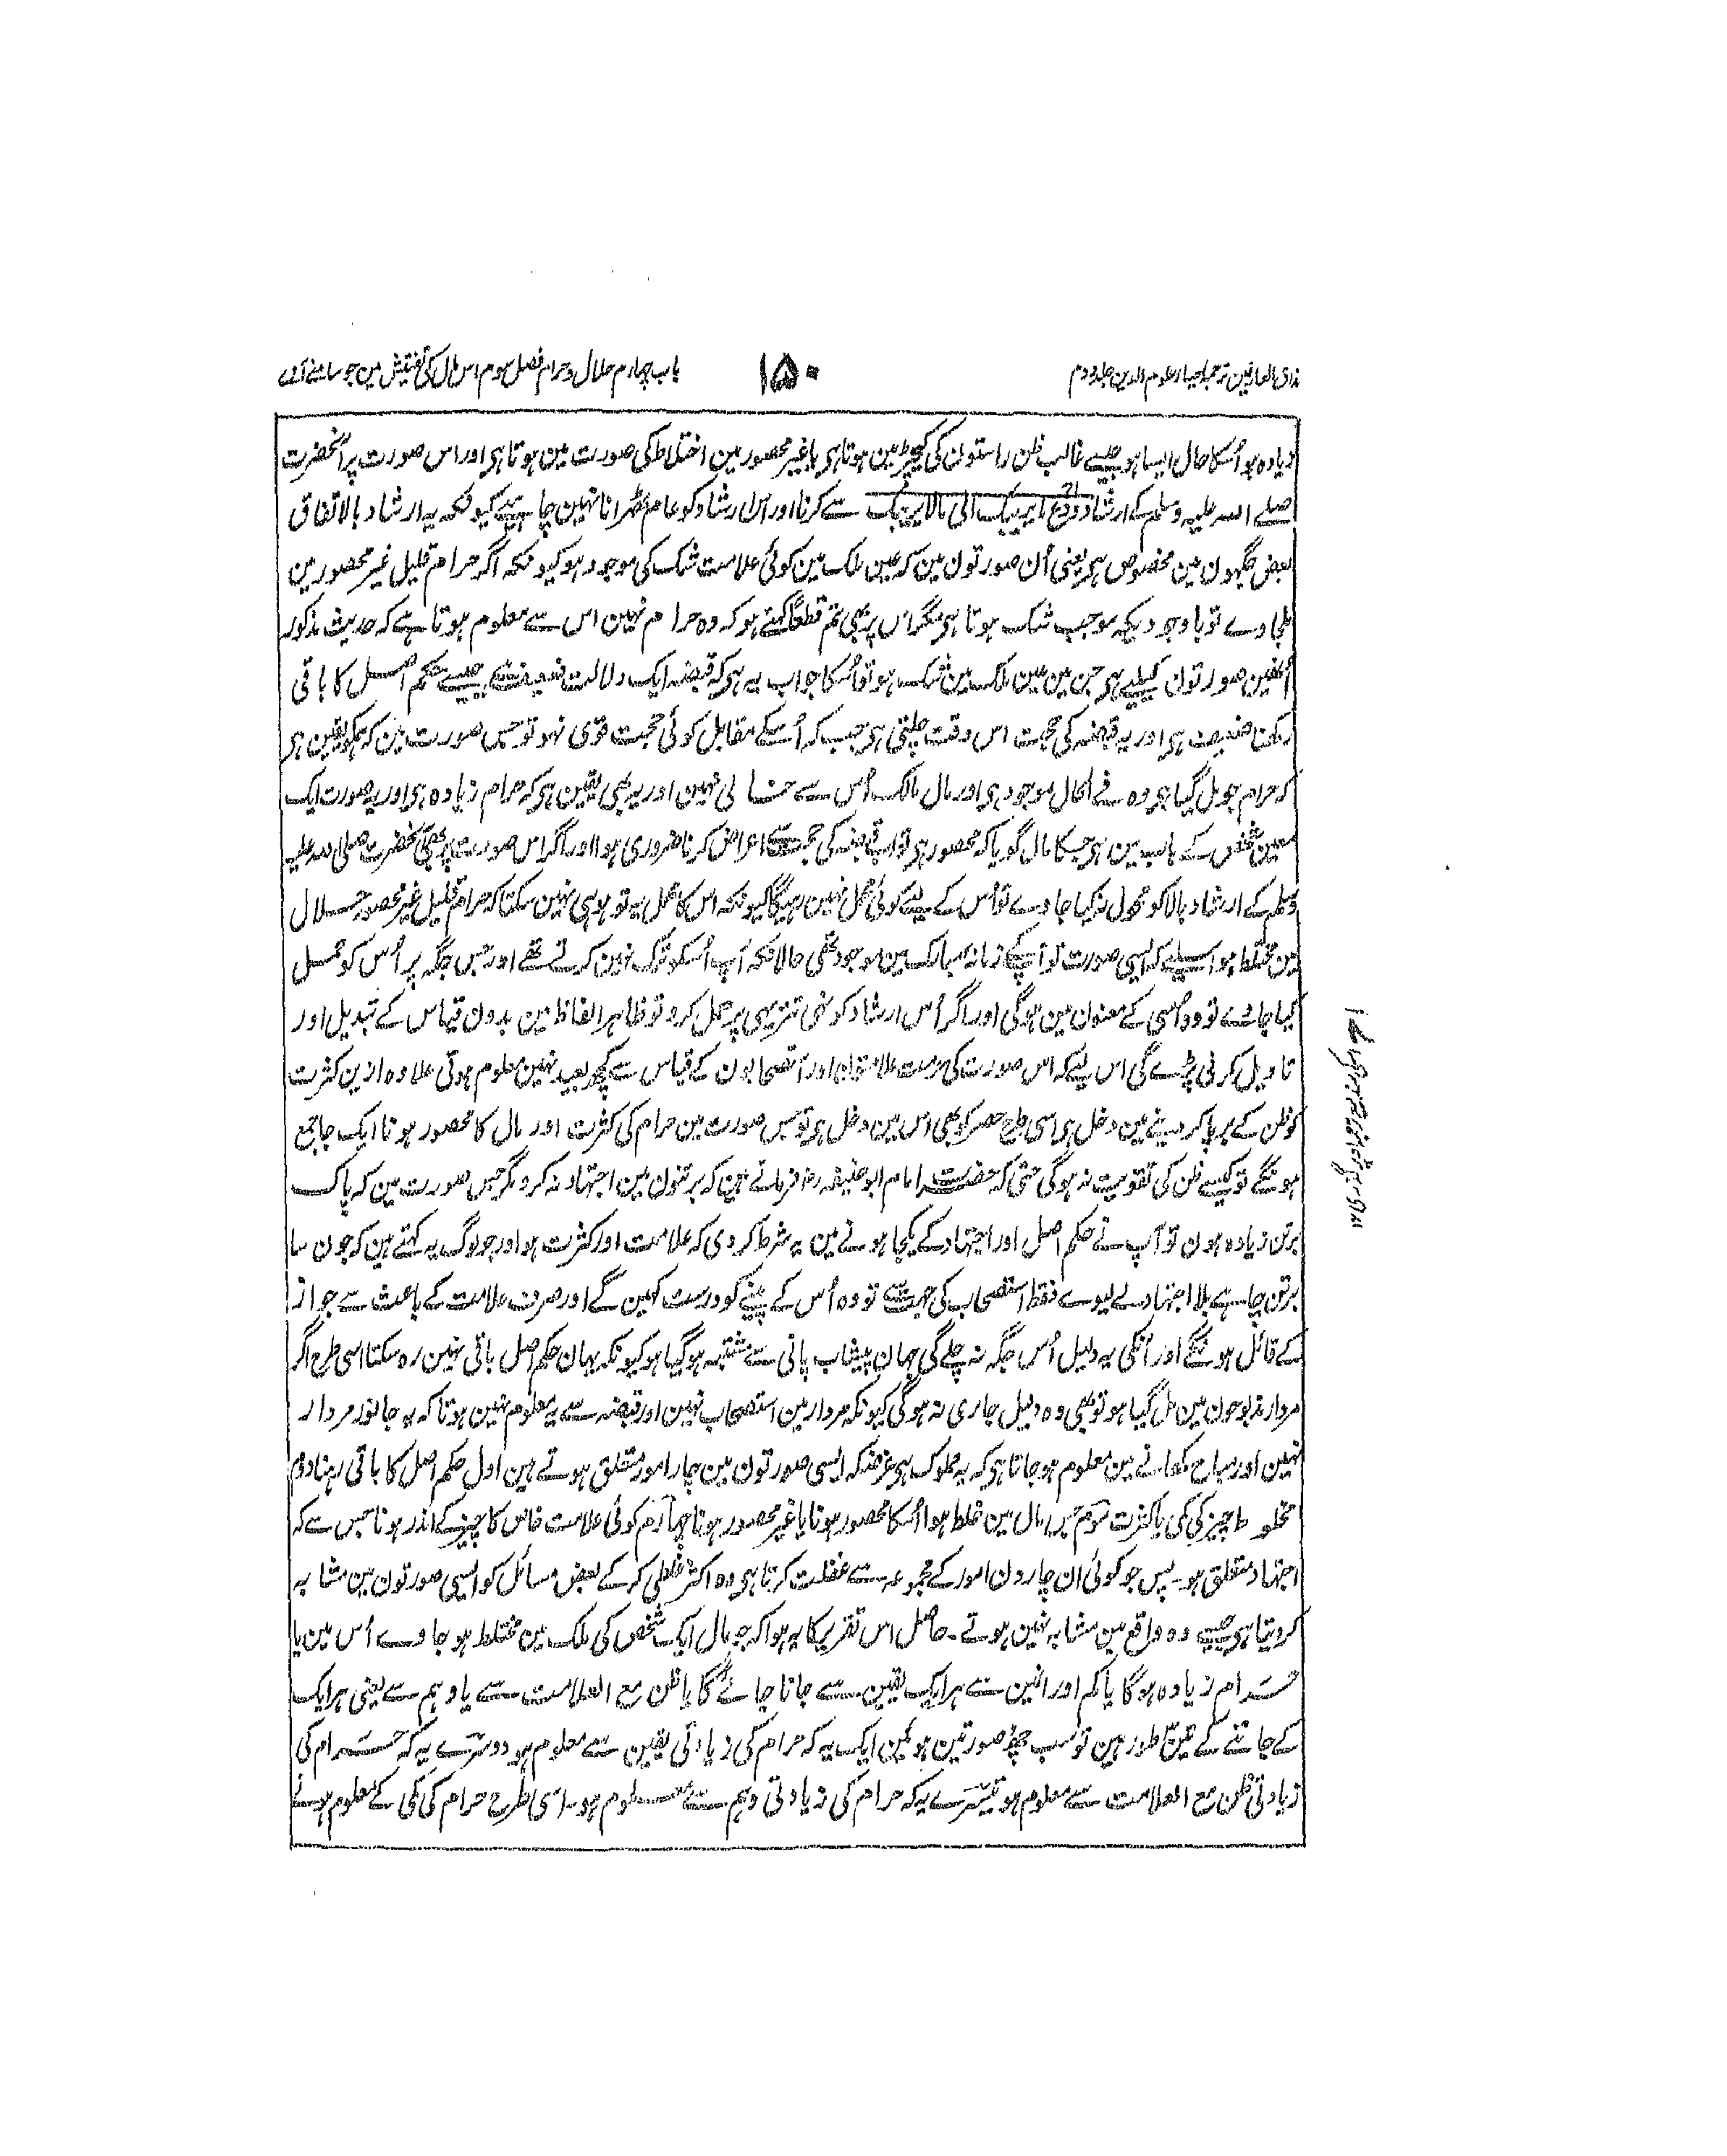 مذاق العارفین ترجمہ احیاء علوم الدین جلد دوم
۱۵۰
باب چہارم حلال و حرام فصل سوم اس مال کی تفتیش مین جو سامنے آوے
زیادہ ہو اُسکا حال ایسا ہو جیسے غالب ظن راستون کی کیچڑ مین ہوتا ہی یا غیر محصور مین اختلاط کی صورت مین ہوتا ہی اور اس صورت پر آنحضرت
صلے اللہ علیہ وسلم کے ارشاد دع ما یریبک الی مالا یریبک سے کرنا اور اس ارشاد کو عام ٹھرانا نہین چاہیے کیونکہ یہ ارشاد بالاتفاق
بعض جگہون مین مخصوص ہی یعنی اُن صورتون مین کہ عین ملک مین کوئی علامت شک کی موجود ہو کیونکہ اگر حرام قلیل غیر محصور مین
ملجاوے تو باوجودیکہ موجب شک ہوتا ہی مگر اس پر بھی تم قطعاً کہتے ہو کہ وہ حرام نہین اس سے معلوم ہوتا ہے کہ حدیث مذکور
اُنھین صورتون کیلیے ہی جن مین عین ملک مین شک ہو تو اُسکا جواب یہ ہی کہ قبضہ ایک دلالت ضعیف ہے جیسے حکم اصل کا باقی
رکھنا ضعیف ہی اور یہ قبضہ کی حجت اس وقت چلتی ہی جب کہ اُسکے مقابل کوئی حجت قوی نہو تو جس صورت مین کہ ہمکو یقین ہی
کہ حرام جو مل گیا ہی وہ فے الحال موجود ہی اور مال مالک اُس سے خالی نہین اور یہ بھی یقین ہی کہ حرام زیادہ ہی اور یہ صورت ایک
معین شخص کے باب مین ہی جسکا مال گویا کہ محصور ہی تو اب قبضہ کی حجت سے اعراض کرنا ضروری ہوا اور اگر اس صورت پر بھی آنحضرت صلی اللہ علیہ
وسلم کے ارشاد بالا کو محمول نہ کیا جاوے تو اُس کے لیے کوئی محمل نہین رہیگا کیونکہ اس کا محمل یہ تو ہو ہی نہین سکتا کہ حرام قلیل غیر محصور حلال
مین مختلط ہو اسلیے کہ ایسی صورت تو آپکے زمانہ مبارک مین موجود تھی حالانکہ آپ اُسکو ترک نہین کرتے تھے اور جس جگہ پر اُس کو محمل
کیا جاوے تو وہ اُسی کے معنون مین ہوگی اور اگر اُس ارشاد کو نہی تنزیہی پر حمل کرو تو ظاہر الفاظ مین بدون قیاس کے تبدیل اور
تاویل کرنی پڑے گی اس لیے کہ اس صورت کی حرمت علامتون اور استصحابون کے قیاس سے کچھ بعید نہین معلوم ہوتی علاوہ ازین کثرت
کو ظن کے برپا کر دینے مین دخل ہی اسی طرح حصر کو بھی اس مین دخل ہی تو جس صورت مین حرام کی کثرت اور مال کا محصور ہونا ایک جا جمع
ہونگے تو کیسے ظن کی تقویت نہ ہوگی حتی کہ حضرت امام ابو حنیفہ رح فرماتے ہین کہ برتنون مین اجتہاد نہ کرو مگر جس صورت مین کہ پاک
برتن زیادہ ہون تو آپ نے حکم اصل اور اجتہاد کے یکجا ہونے مین یہ شرط کر دی کہ علامت اور کثرت ہو اور جو لوگ یہ کہتے ہین کہ جون سا
برتن چاہے بلا اجتہاد لے لیوے فقط استصحاب کی جہت سے تو وہ اُس کے پینے کو درست کہین گے اور صرف علامت کے باعث سے جواز
کے قائل ہونگے اور اُنکی یہ دلیل اُس جگہ نہ چلے گی جہان پیشاب پانی سے مشتبہ ہو گیا ہو کیونکہ یہان حکم اصل باقی نہین رہ سکتا اسی طرح اگر
مردار مذبوحون مین مل گیا ہو تو بھی وہ دلیل جاری نہ ہوگی کیونکہ مردار مین استصحاب نہین اور قبضہ سے یہ معلوم نہین ہوتا کہ یہ جانور مردار
نہین اور مباح کھانے مین معلوم ہو جاتا ہی کہ یہ مملوک ہی غرضکہ ایسی صورتون مین چار امور متعلق ہوتے ہین اول حکم اصل کا باقی رہنا دوم
مخلوط چیز کی کمی یا کثرت سوم جس مال مین خلط ہوا اُسکا محصور ہونا یا غیر محصور ہونا چہارم کوئی علامت خاص کا چیز کے اندر ہونا جس سے کہ
اجتہاد متعلق ہو۔ پس جو کوئی ان چارون امور کے مجموعہ سے غفلت کرتا ہی وہ اکثر غلطی کر کے بعض مسائل کو ایسی صورتون مین مشابہ
کر دیتا ہی جیسے وہ واقع مین مشابہ نہین ہوتے۔ حاصل اس تقریر کا یہ ہوا کہ جو مال ایک شخص کی ملک مین مختلط ہو جاوے اُس مین یا
حرام زیادہ ہوگا یا کم اور انمین سے ہر ایک یقین سے جانا جائے گا یا ظن مع العلامت سے یا وہم سے یعنی ہر ایک
کے جاننے کے تین طور ہین تو سب چھ صورتین ہوئین ایک یہ کہ حرام کی زیادتی یقین سے معلوم ہو دوسرے یہ کہ حرام کی
زیادتی ظن مع العلامت سے معلوم ہو تیسرے یہ کہ حرام کی زیادتی وہم سے معلوم ہو۔ اسی طرح حرام کی کمی کے معلوم ہونے